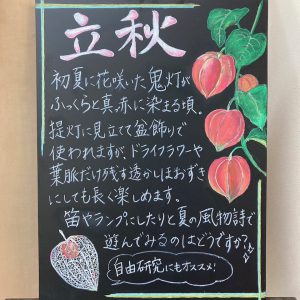 立秋
初夏に花咲いた鬼灯が
ふっくらと真赤に染まる頃。
提灯に見立てて盆飾りで
使われますが、ドライフラワーや
葉脈だけ残す透かしほおずき
にしても長く楽しめます。
笛やランプにしたりと夏の風物詩で
遊んでみるのはどうですか?
自由研究にもオススメ!